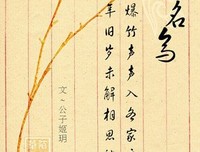 名为
爆竹声声入各家
年旧岁未解相思
文～公子姬玥